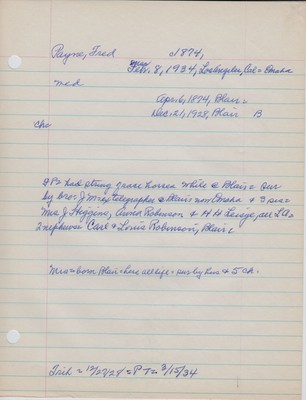 Payne, Fred c1874,
Feb. 8, 1934, Los Angeles, Cal = Omaha
med
Apr. 6, 1874, Blair =
Dec. 21, 1928, Blair B
Cha
had string race horses while @ Blair = Sur
by bros J M ex telegrapher @ Blair now Omaha & 3 sis =
Mrs J Higgins, Anna Robinson & H H all LA =
2 nephews Carl & Louis Robinson, Blair =
Mrs = born Blair = here all life = sur by hus & 5 ch.
Trib = 12/27/28 = P T = 3/15/34